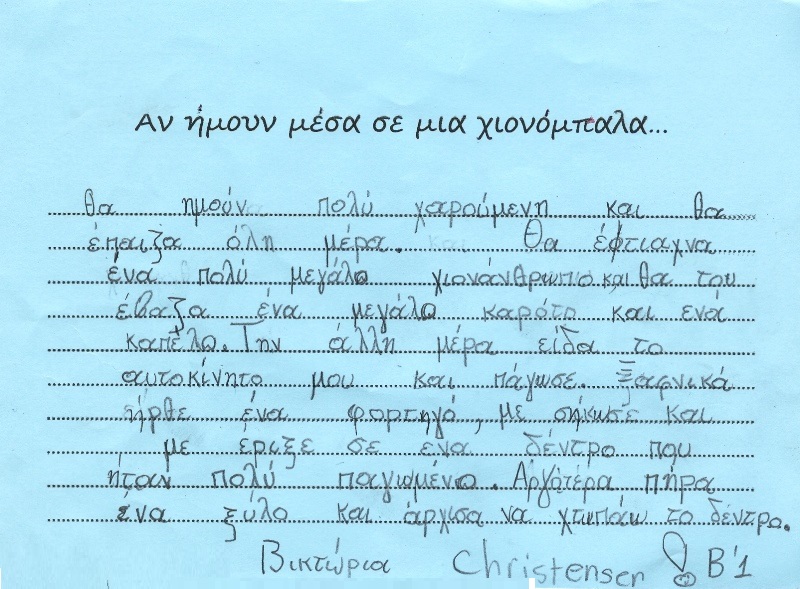 Αν ήμουν μέσα σε μια χιονόμπαλα...
θα ημούν πολύ χαρούμενη και θα
έπαιζα όλη μέρα. Θα έφτιαχνα
ένα πολύ μεγάλο χιονάνθρωπο και θα του
έβαζα ένα μεγάλο καρότο και ενά
καπέλο. Την άλλη μέρα είδα το
αυτοκίνητο μου και πάγωσε. Ξαφνικά
ήρθε ένα φορτηγό, με σήκωσε και
με εριξε σε ενα δέντρο που
ήταν πολύ παγωμένο. Αργότερα πήρα
ένα ξύλο και άρχισα να χτυπάω το δέντρο.
Βικτώρια Christensen ! Β'1